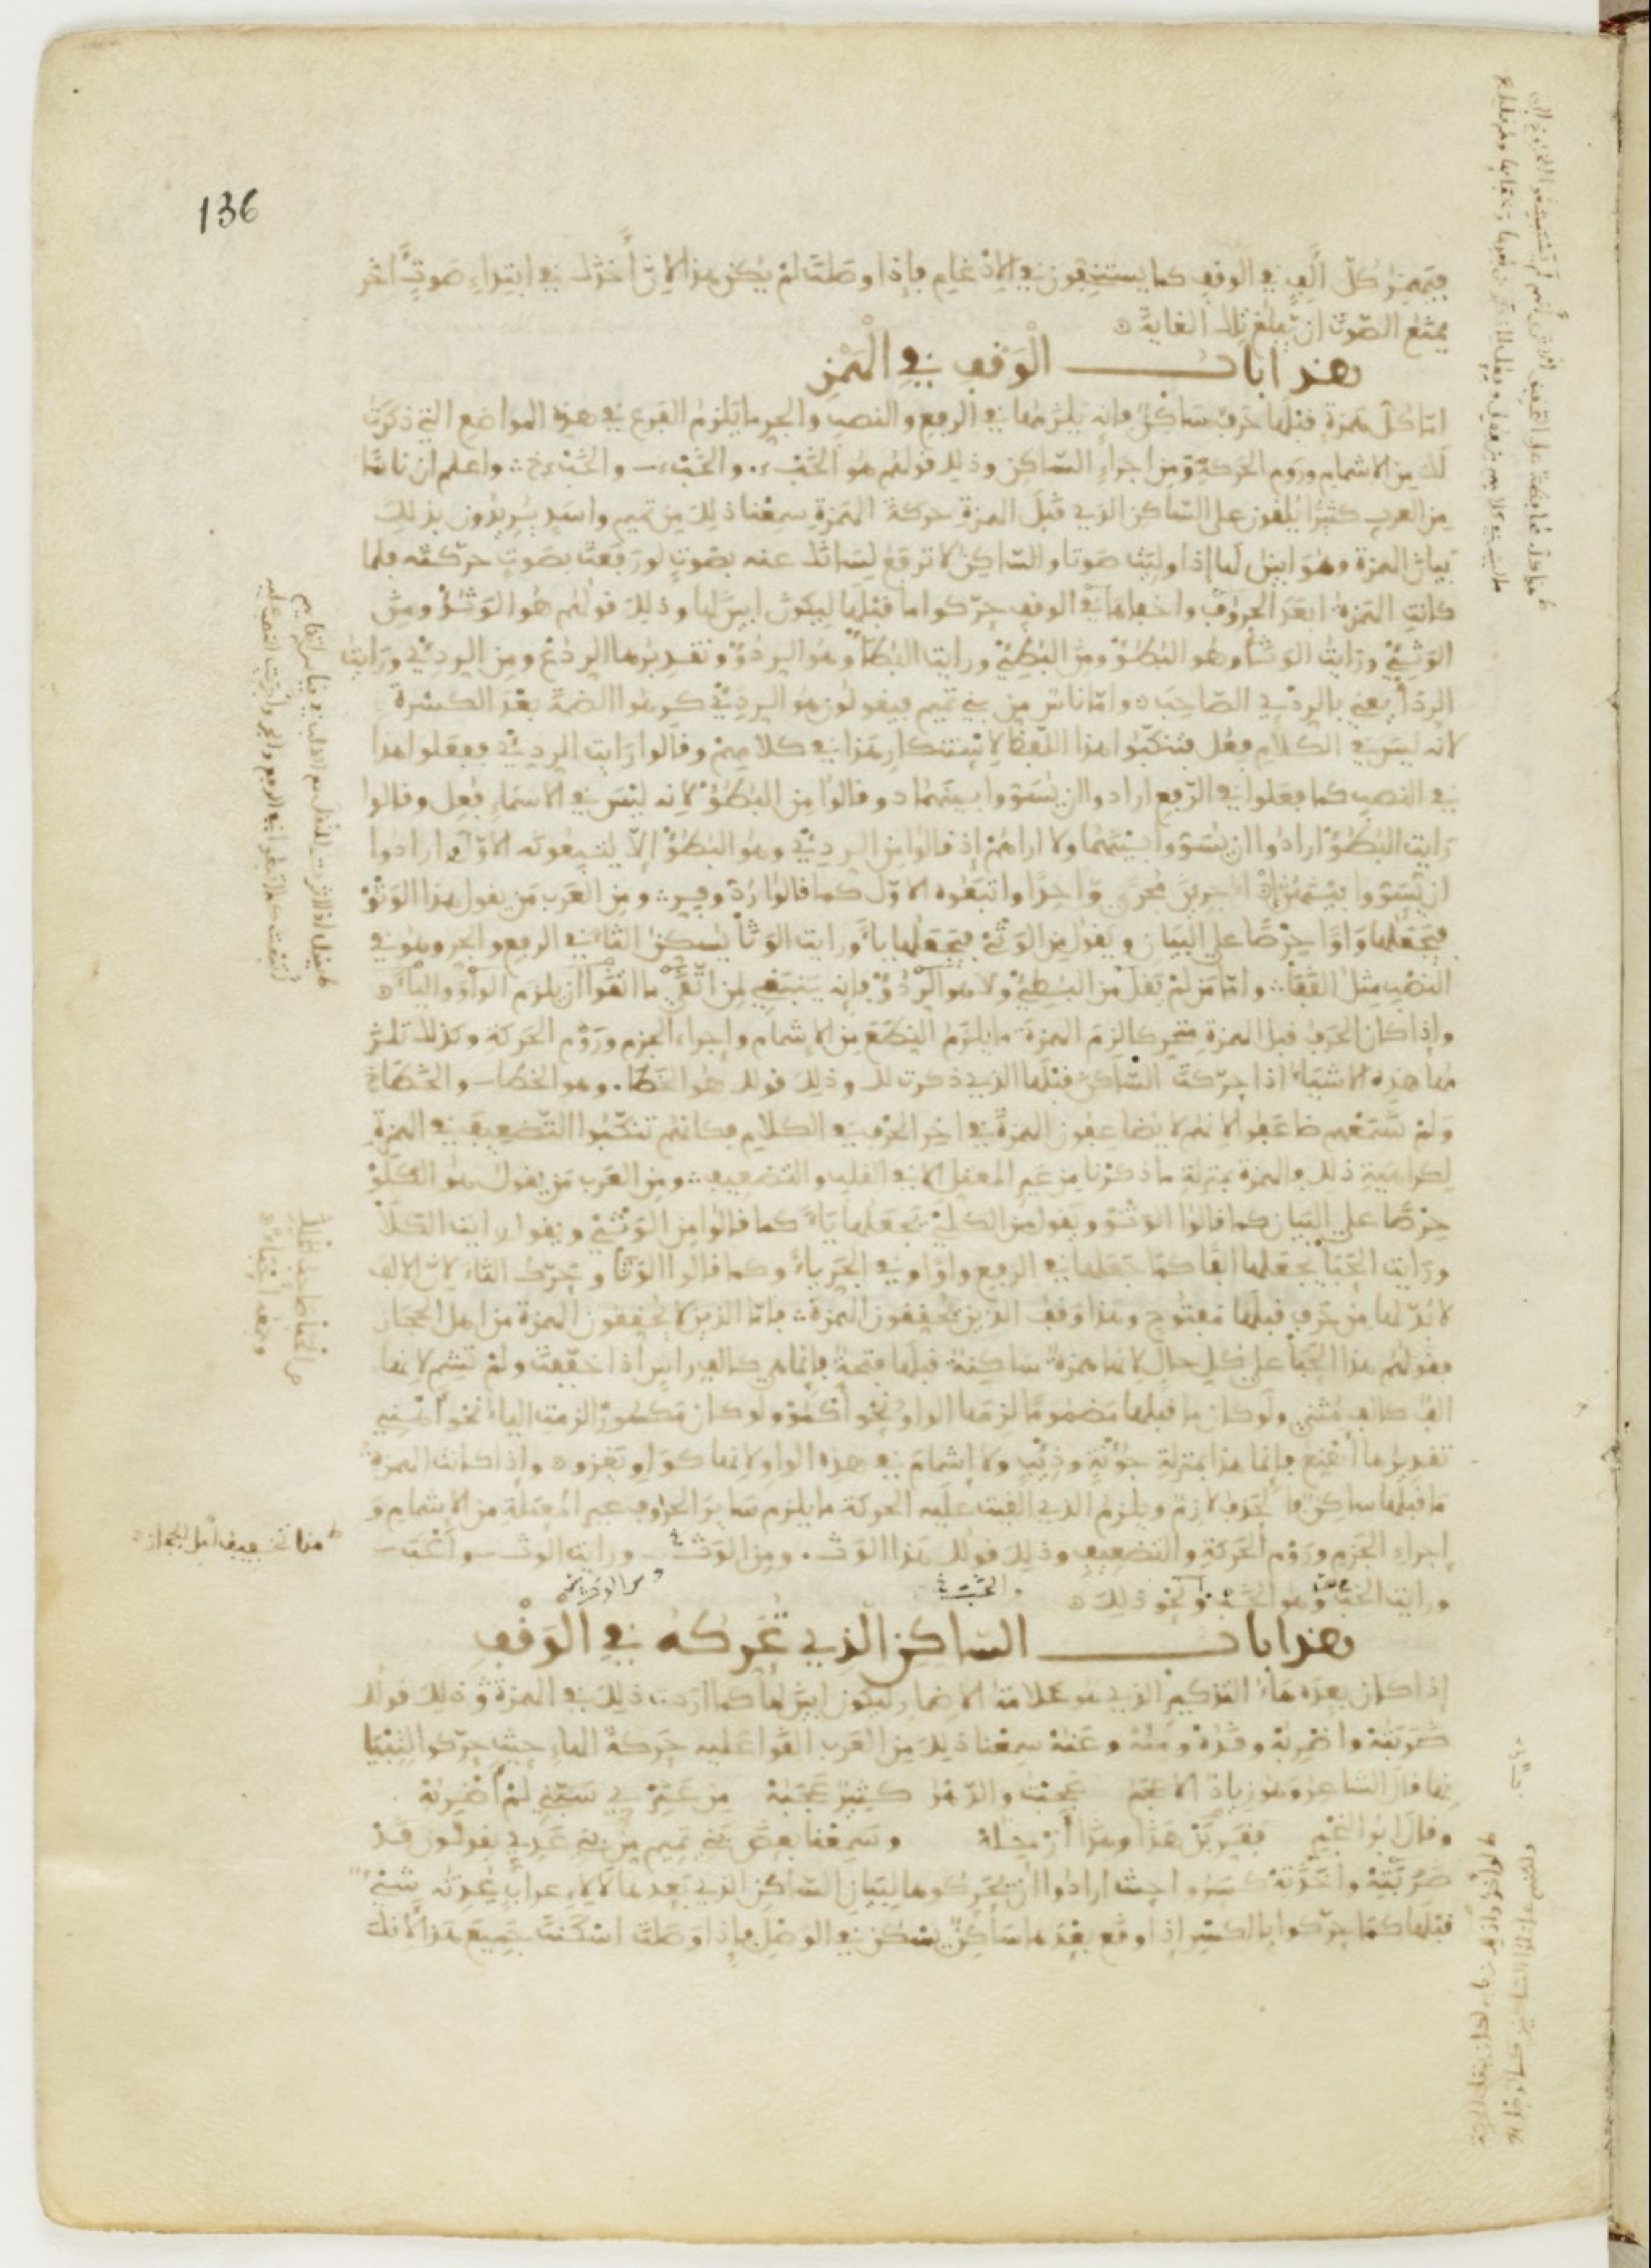 136
فيهمز كل ألف في الوقف كما يستخفون في الإدغام فإذا وصلت لم يكن هذا لأن أخذك في ابتداء صوت آخر
يمنع الصوت أن يبلغ تلك الغاية
هذا باب الوقف في الهمز
أما كل همزة قبلها حرف ساكن فإنه يلزمها في الرفع والنصب والجر ما يلزم الفرع في هذه المواضع التي ذكرت
لك من الإشمام وروم الحركة ومن إجراء الساكن وذلك قولهم هو الخبء والخبء والخبء واعلم أن ناسا
من العرب كثيرا يلقون على الساكن الذي قبل الهمزة حركة الهمزة سمعنا ذلك من تميم وأسد يريدون بذلك
بيان الهمزة وهو أبين لها إذا وليت صوتا والساكن لا ترفع لسانك عنه بصوت لو رفعت بصوت حركته فلما
كانت الهمزة أبعد الحروف وأخفاها في الوقف حركوا ما قبلها ليكون أبين لها وذلك قولهم هو الوثؤ ومن
الوثئ ورأيت الوثأ وهو البطؤ ومن البطئ ورأيت البطأ وهو الردؤ وتقديرها الردع ومن الردئ ورأيت
الردأ يعني بالردء الصاحب وأما ناس من بني تميم فيقولون هو الردئ كرهوا الضمة بعد الكسرة
لأنه ليس في الكلام فعل فتنكبوا هذا اللفظ لاستنكار هذا في كلامهم وقالوا رأيت الردئ ففعلوا هذا
في النصب كما فعلوا في الرفع أرادوا أن يسووا بينهما وقالوا من البطؤ لأنه ليس في الأسماء فعل وقالوا
رأيت البطؤ أرادوا أن يسووا بينهما ولا أراهم إذ قالوا من الردئ وهو البطؤ إلا يتبعونه الأول أرادوا
أن يسووا بينهن إذ أجرين مجرى واحدا وأتبعوه الأول كما قالوا رد وفر ومن العرب من يقول هذا الوثو
فيجعلها واوا حرصا على البيان ويقول من الوثي فيجعلها ياء ورأيت الوثا يسكن الثاء في الرفع والجر وهو في
النصب مثل القفا وأما من لم يقل من البطئ ولا هو الردؤ فإنه ينبغي لمن اتقى ما اتقوا أن يلزم الواو والياء
وإذا كان الحرف قبل الهمزة متحركا لزم الهمزة ما يلزم النطع من الإشمام وإجراء الجزم وروم الحركة وكذلك تلز
مها هذه الأشياء إذا حركت الساكن قبلها الذي ذكرت لك وذلك قولك هو الخطأ وهو الخطأ والخطأ
ولم نسمعهم ضاعفوا لأنهم لا يضاعفون الهمزة في آخر الحرف في الكلام فكأنهم تنكبوا التضعيف في الهمزة
لكراهية ذلك والهمزة بمنزلة ما ذكرنا من غير المعتل إلا في القلب والتضعيف ومن العرب من يقول هو الكلو
حرصا على البيان كما قالوا الوثو ويقول من الكلي يجعلها ياء كما قالوا من الوثي ويقول رأيت الكلا
ورأيت الحبا يجعلها ألفا كما جعلها في الرفع واوا وفي الجر ياء وكما قالوا الوثا وحرك الثاء لأن الألف
لا بد لها من حرف قبلها مفتوح وهذا وقف الذين يحققون الهمزة فأما الذين لا يحققون الهمزة من أهل الحجاز
فقولهم هذا الخبا على كل حال لأنها همزة ساكنة قبلها فتحة فإنما هي كألف راس إذا خففت ولم تشم لأنها
ألف كألف مثنى ولو كان ما قبلها مضموما لزمها الواو نحو أكمو ولو كان مكسورا لزمت الياء نحو أهني
تقديرها أهنع فإنما هذا بمنزلة جونة وذيب ولا إشمام في هذه الواو لأنها كواو تغزو وإذا كانت الهمزة
ما قبلها ساكن فالحذف لازم ويلزم الذي ألقيت عليه الحركة ما يلزم سائر الحروف غير المعتلة من الإشمام و
إجراء الجزم وروم الحركة والتضعيف وذلك قولك هذا الوث ومن الوث ورأيت الوث والخب
ورأيت الخب وهو الخب ونحو ذلك
هذا باب الساكن الذي تحركه في الوقف
إذا كان بعده هاء التذكير الذي هو علامة الإضمار ليكون أبين لها كما أردت ذلك في الهمزة وذلك قولك
ضربته واضربه وقده ومنه وعنه سمعنا ذلك من العرب ألقوا عليه حركة الهاء حيث حركوا لتبيا
نها قال الشاعر وهو زياد الأعجم عجبت والدهر كثير عجبه من عنزي سبني لم أضربه
وقال أبو النجم فقربن هذا وهذا أزحله وسمعنا بعض بني تميم من بني عدي يقولون قد
ضربته وأخذته كسروا حيث أرادوا أن يحركوها لبيان الساكن الذي بعدها لا لإعراب يحدثه شيء
قبلها كما حركوا بالكسر إذا وقع بعدها ساكن يسكن في الوصل فإذا وصلت أسكنت جميع هذا لأنك
هذا تخفيف أهل الحجاز